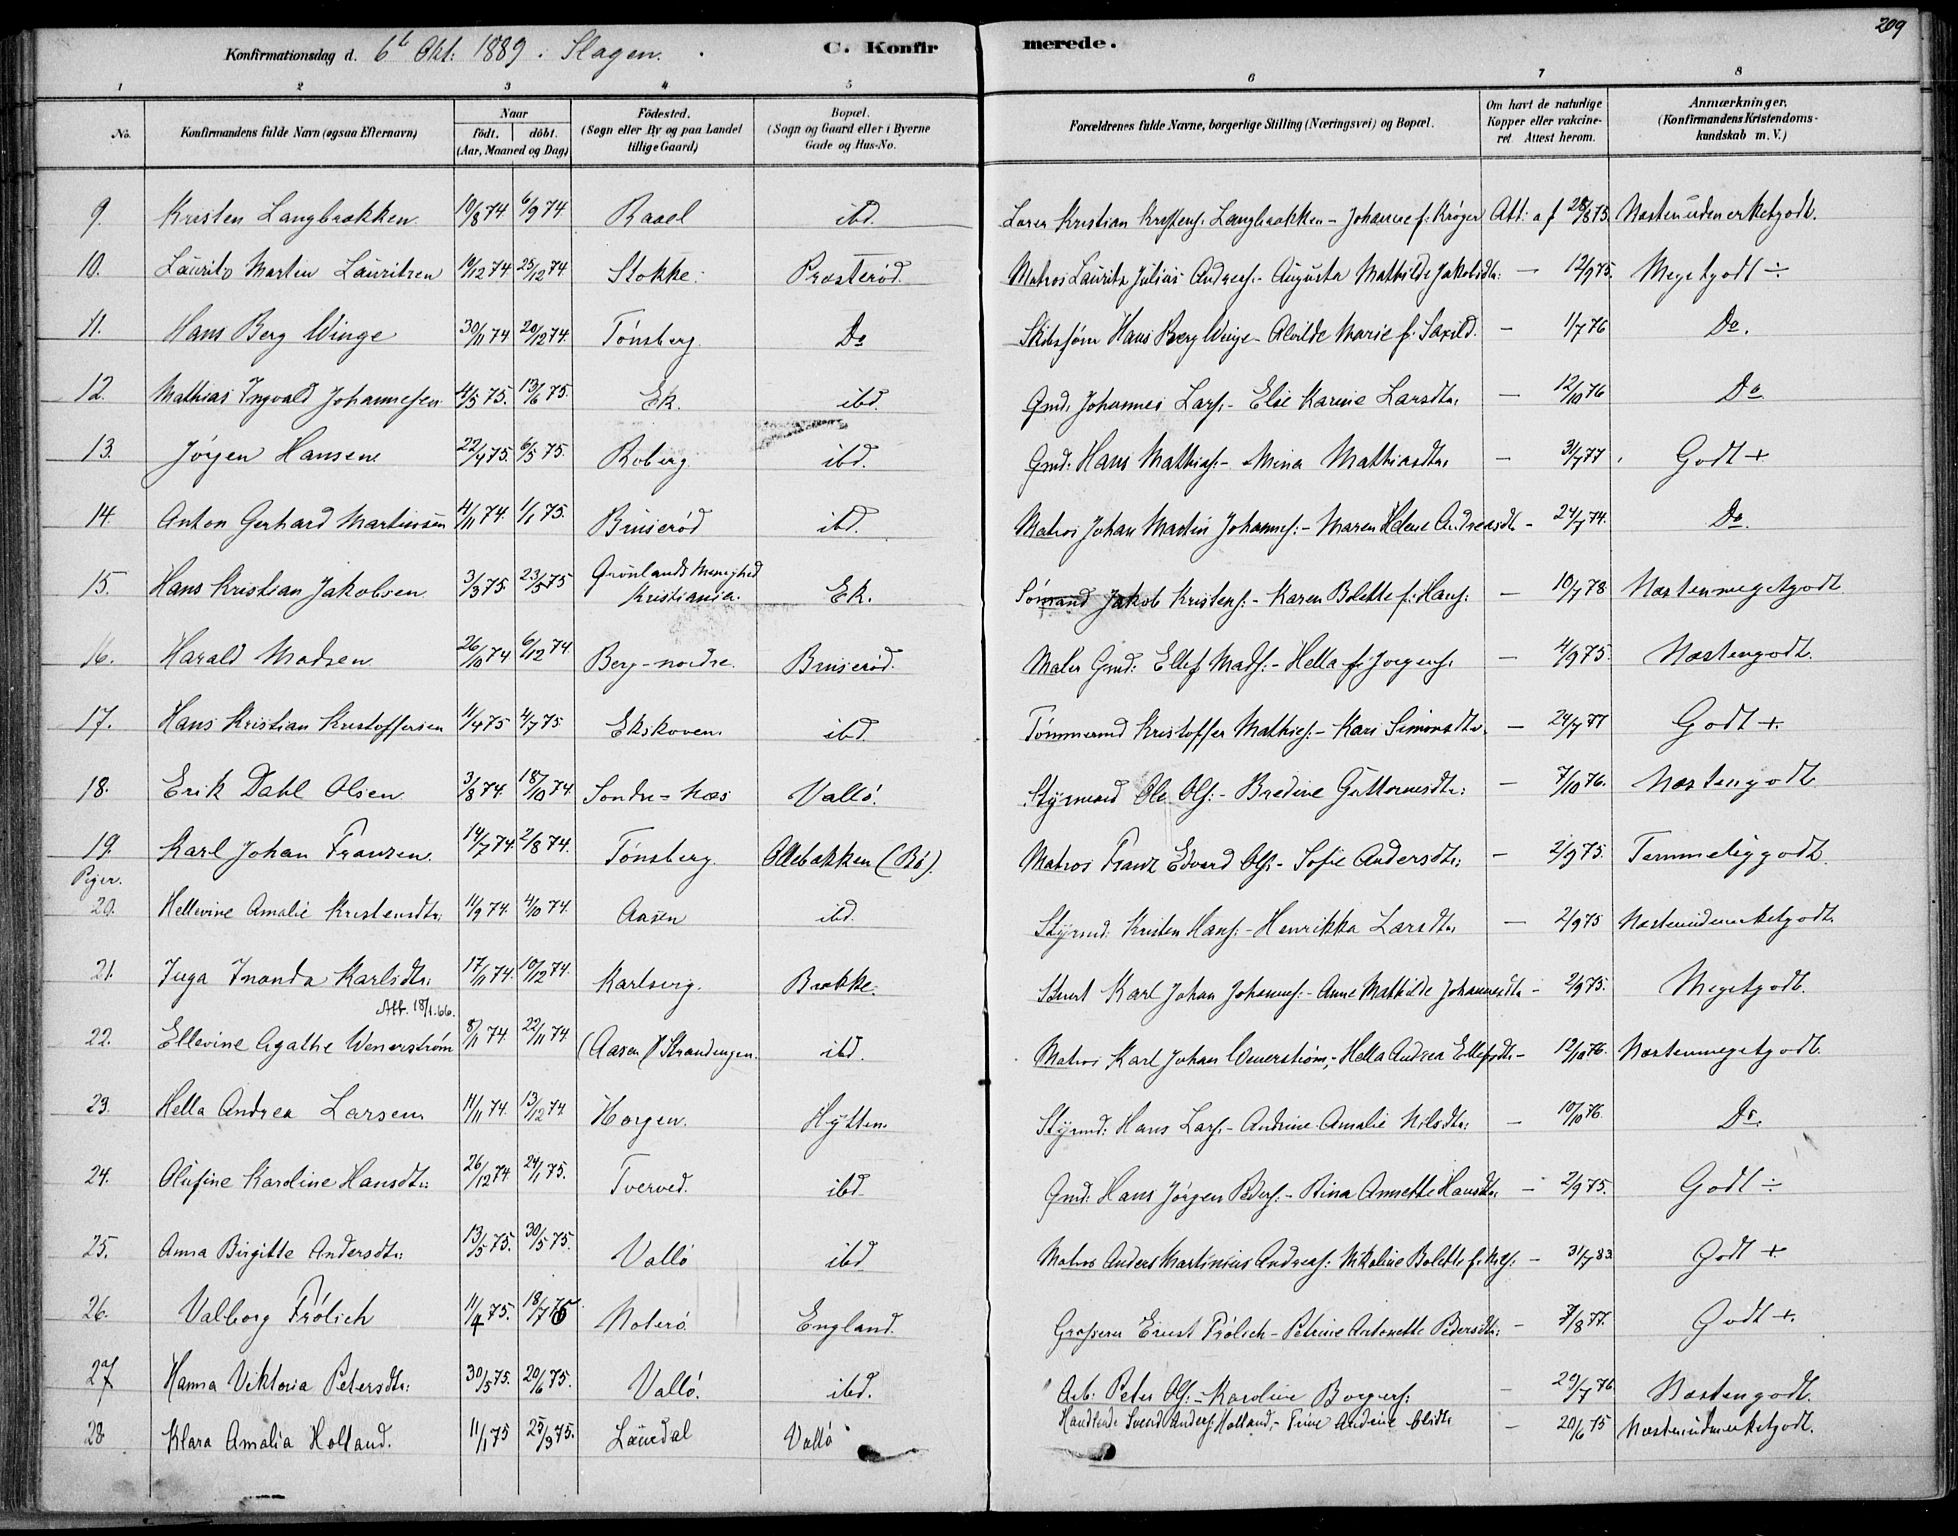 209
Konfirmationsdag d. 6t Okt. 1889 i Slagen. C. Konfirmerede.
1 2 3 4 5 6 7 8
No. Konfirmandens fulde Navn (ogsaa Efternavn) Naar födt. döbt. (Aar, Maaned og Dag) Födested. (Sogn eller By og paa Landet tillige Gaard) Bopæl. (Sogn og Gaard eller i Byerne Gade og Hus-No. Forældrenes fulde Navne, borgerlige Stilling (Næringsvei) og Bopæl. Om havt de naturlige Kopper eller vakcineret. Attest herom. Anmærkninger. (Konfirmandens Kristendomskundskab m. V.)
9. Kristen Langbrækken 10/8 74 6/9 74 Raael ibd. Lærer Kristian Kristens: Langbrækken - Johanne f. Krøger Att: af 28/8 75. Næsten udmerketgodt.
10. Lauritz Martin Lauritzen 10/12 74 25/12 74 Stokke. Præsterød. Matros Lauritz Julius Andreas: - Augusta Mathilde Jakobsdtr: — 12/9 75. Megetgodt ÷
11. Hans Berg Winge 30/11 74 20/12 74. Tønsberg. Do Skibsfører Hans Berg Winge - Alvilde Marie f. Saxild. — 1/7 76 Do.
12. Mathias Ingvald Johannesen 4/5 75. 13/6 75. Ek. ibd. Gmd: Johannes Lars. - Else Karine Larsdtr. — 12/10 76 Do
13. Jørgen Hansen 22/4 75. 6/5 75. Roberg ibd. Gmd: Hans Mathias: - Mina Mathiasdtr. — 31/7 77. Godt +
14. Anton Gerhard Martinsen 4/11 74. 1/1 75. Bruserød ibd. Matros Johan Martin Johannes: - Maren Helene Andreasdtr - 24/7 74. Do.
15. Hans Kristian Jakobsen 3/3 75. 23/5 75 Grønlands Menighed Kristiania. Ek. Sømand Jakob Kristens: - Karen Bolette f. Hans: — 10/7 78 Næstenmegetgodt
16. Harald Madsen 26/10 74 6/12 74 Berg-nordre. Bruserød. Maler Gmd: Ellef Mads: - Hella f. Jorgens. — 4/9 75. Næstengodt.
17. Hans Kristian Kristoffersen 11/4 75 4/7 75 Ekskoven. ibd. Tømmermd Kristoffer Mathias: - Kari Simonsdtr. — 24/7 77 Godt +.
18. Erik Dahl Olsen 3/8 74. 18/10 74. Sondre = Næs Vallö. Styrmand Ole Ols: - Bredine Guttormsdtr: — 7/10 76. Næstengodt
19. Karl Johan Franzen. 14/7 74. 2/8 74. Tønsberg. Ollebakken (Bö). Matros Franz Edvard Ols. - Sofie Andersdtr: — 2/9 75. Temmeliggodt.
Piger.
20. Hellevine Amalie Kristensdtr: 11/9 74. 4/10 74. Aasen ibd. Styrmd: Kristen Hans: - Henrikka Larsdtr. — 2/9 75 Næstenudmerketgodt.
21. Inga Inanda Karlsdtr: 17/11 74. 10/12 74. Karlsvig. Brække. Karl Johan Johannes: - Anne Mathilde Johannesdtr - 2/9 75. Megetgodt.
Att. 18/1.66.
22. Ellevine Agathe Wenerstrøm 8/11 74. 22/11 74. (Aasen) Strandengen. ibd. Matros Karl Johan Wenerstrøm, - Hella Andrea Ellefsdtr - 12/10 76. Næstenmegetgodt.
23. Hella Andrea Larsen. 11/11 74. 13/12 74 Horgen. Hytten. Styrmd: Hans Lars. - Andrine Amalie Nilsdtr: — 10/10 76. Do.
24. Olufine Karoline Hansdtr: 26/12 74. 24/1 75. Tverved. ibd. Gmd: Hans Jørgen Peders: - Rina Annette Hansdtr. — 2/9 75. Godt ÷
25. Anna Birgitte Andersdtr: 13/5 75. 30/5 75. Vallö ibd Matros Anders Martinius Andreas: Nikoline Bolette f. Nils: — 31/7 83. Godt +
26. Valborg Frölich 11/4 75. 18/7 75 Noterö England. Grosserer Ernst Frölich - Petrine Antonette Pedersdtr: — 7/8 77. Godt +.
27 Hanna Viktoria Petersdtr: 30/5 75. 20/6 75. Vallö. ibd. Arb: Peter Ols: - Karoline Borgers: — 29/7 76. Næstengodt.
28 Klara Amalia Holland. 11/1 75 25/3 75. Lauedal Vallö Handlende Svend Anders: Holland, - Trine Andrine Olsdtr — 20/6 75 Næstenudmerketgodt.